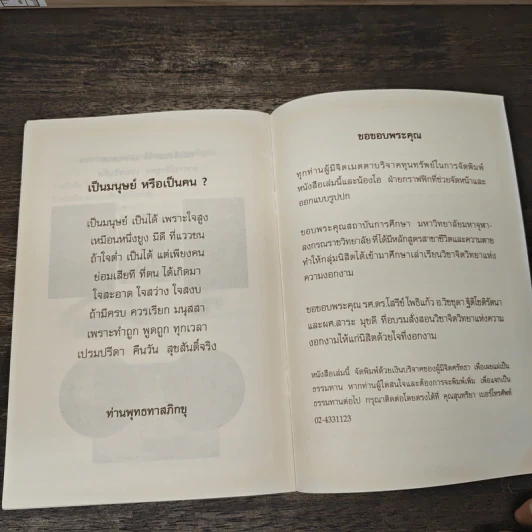 เป็นมนุษย์ หรือเป็นคน ?
เป็นมนุษย์ เป็นได้ เพราะใจสูง
เหมือนหนึ่งยูง มีดี ที่แววขน
ถ้าใจต่ำ เป็นได้ แต่เพียงคน
ย่อมเสียที ที่ตน ได้เกิดมา
ใจสะอาด ใจสว่าง ใจสงบ
ถ้ามีครบ ควรเรียก มนุสสา
เพราะทำถูก พูดถูก ทุกเวลา
เปรมปรีดา คืนวัน สุขสันติ์จริง
ท่านพุทธทาสภิกขุ
ขอขอบพระคุณ
ทุกท่านผู้มีจิตเมตตาบริจาคทุนทรัพย์ในการจัดพิมพ์
หนังสือเล่มนี้และน้องไอ ฝ่ายกราฟฟิกที่ช่วยจัดหน้าและ
ออกแบบรูปปก
ขอบพระคุณสถาบันการศึกษา มหาวิทยาลัยมหาจุฬา-
ลงกรณราชวิทยาลัย ที่ได้มีหลักสูตรสาขาชีวิตและความตาย
ทำให้กลุ่มนิสิตได้เข้ามาศึกษาเล่าเรียนวิชาจิตวิทยาแห่ง
ความงอกงาม
ขอขอบพระคุณ รศ.ดร.โสรีช์ โพธิแก้ว อ.วิชชุดา ฐิติโชติรัตนา
และผศ.สาระ มุขดี ที่อบรมสั่งสอนวิชาจิตวิทยาแห่งความ
งอกงามให้แก่นิสิตด้วยใจที่งอกงาม
หนังสือเล่มนี้ จัดพิมพ์ด้วยเงินบริจาคของผู้มีจิตศรัทธา เพื่อเผยแผ่เป็น
ธรรมทาน หากท่านผู้ใดสนใจและต้องการจะพิมพ์เพิ่ม เพื่อแจกเป็น
ธรรมทานต่อไป กรุณาติดต่อโดยตรงได้ที่ คุณสุนทรียา เบอร์โทรศัพท์
02-4331123